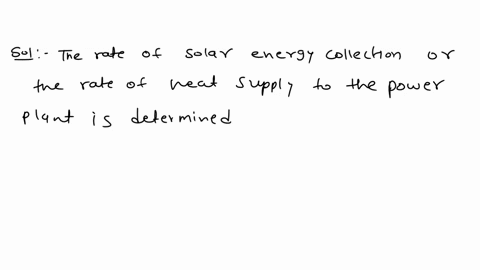 Sol:- The rate of solar energy collection or
the rate of heat supply to the power
plant is determined